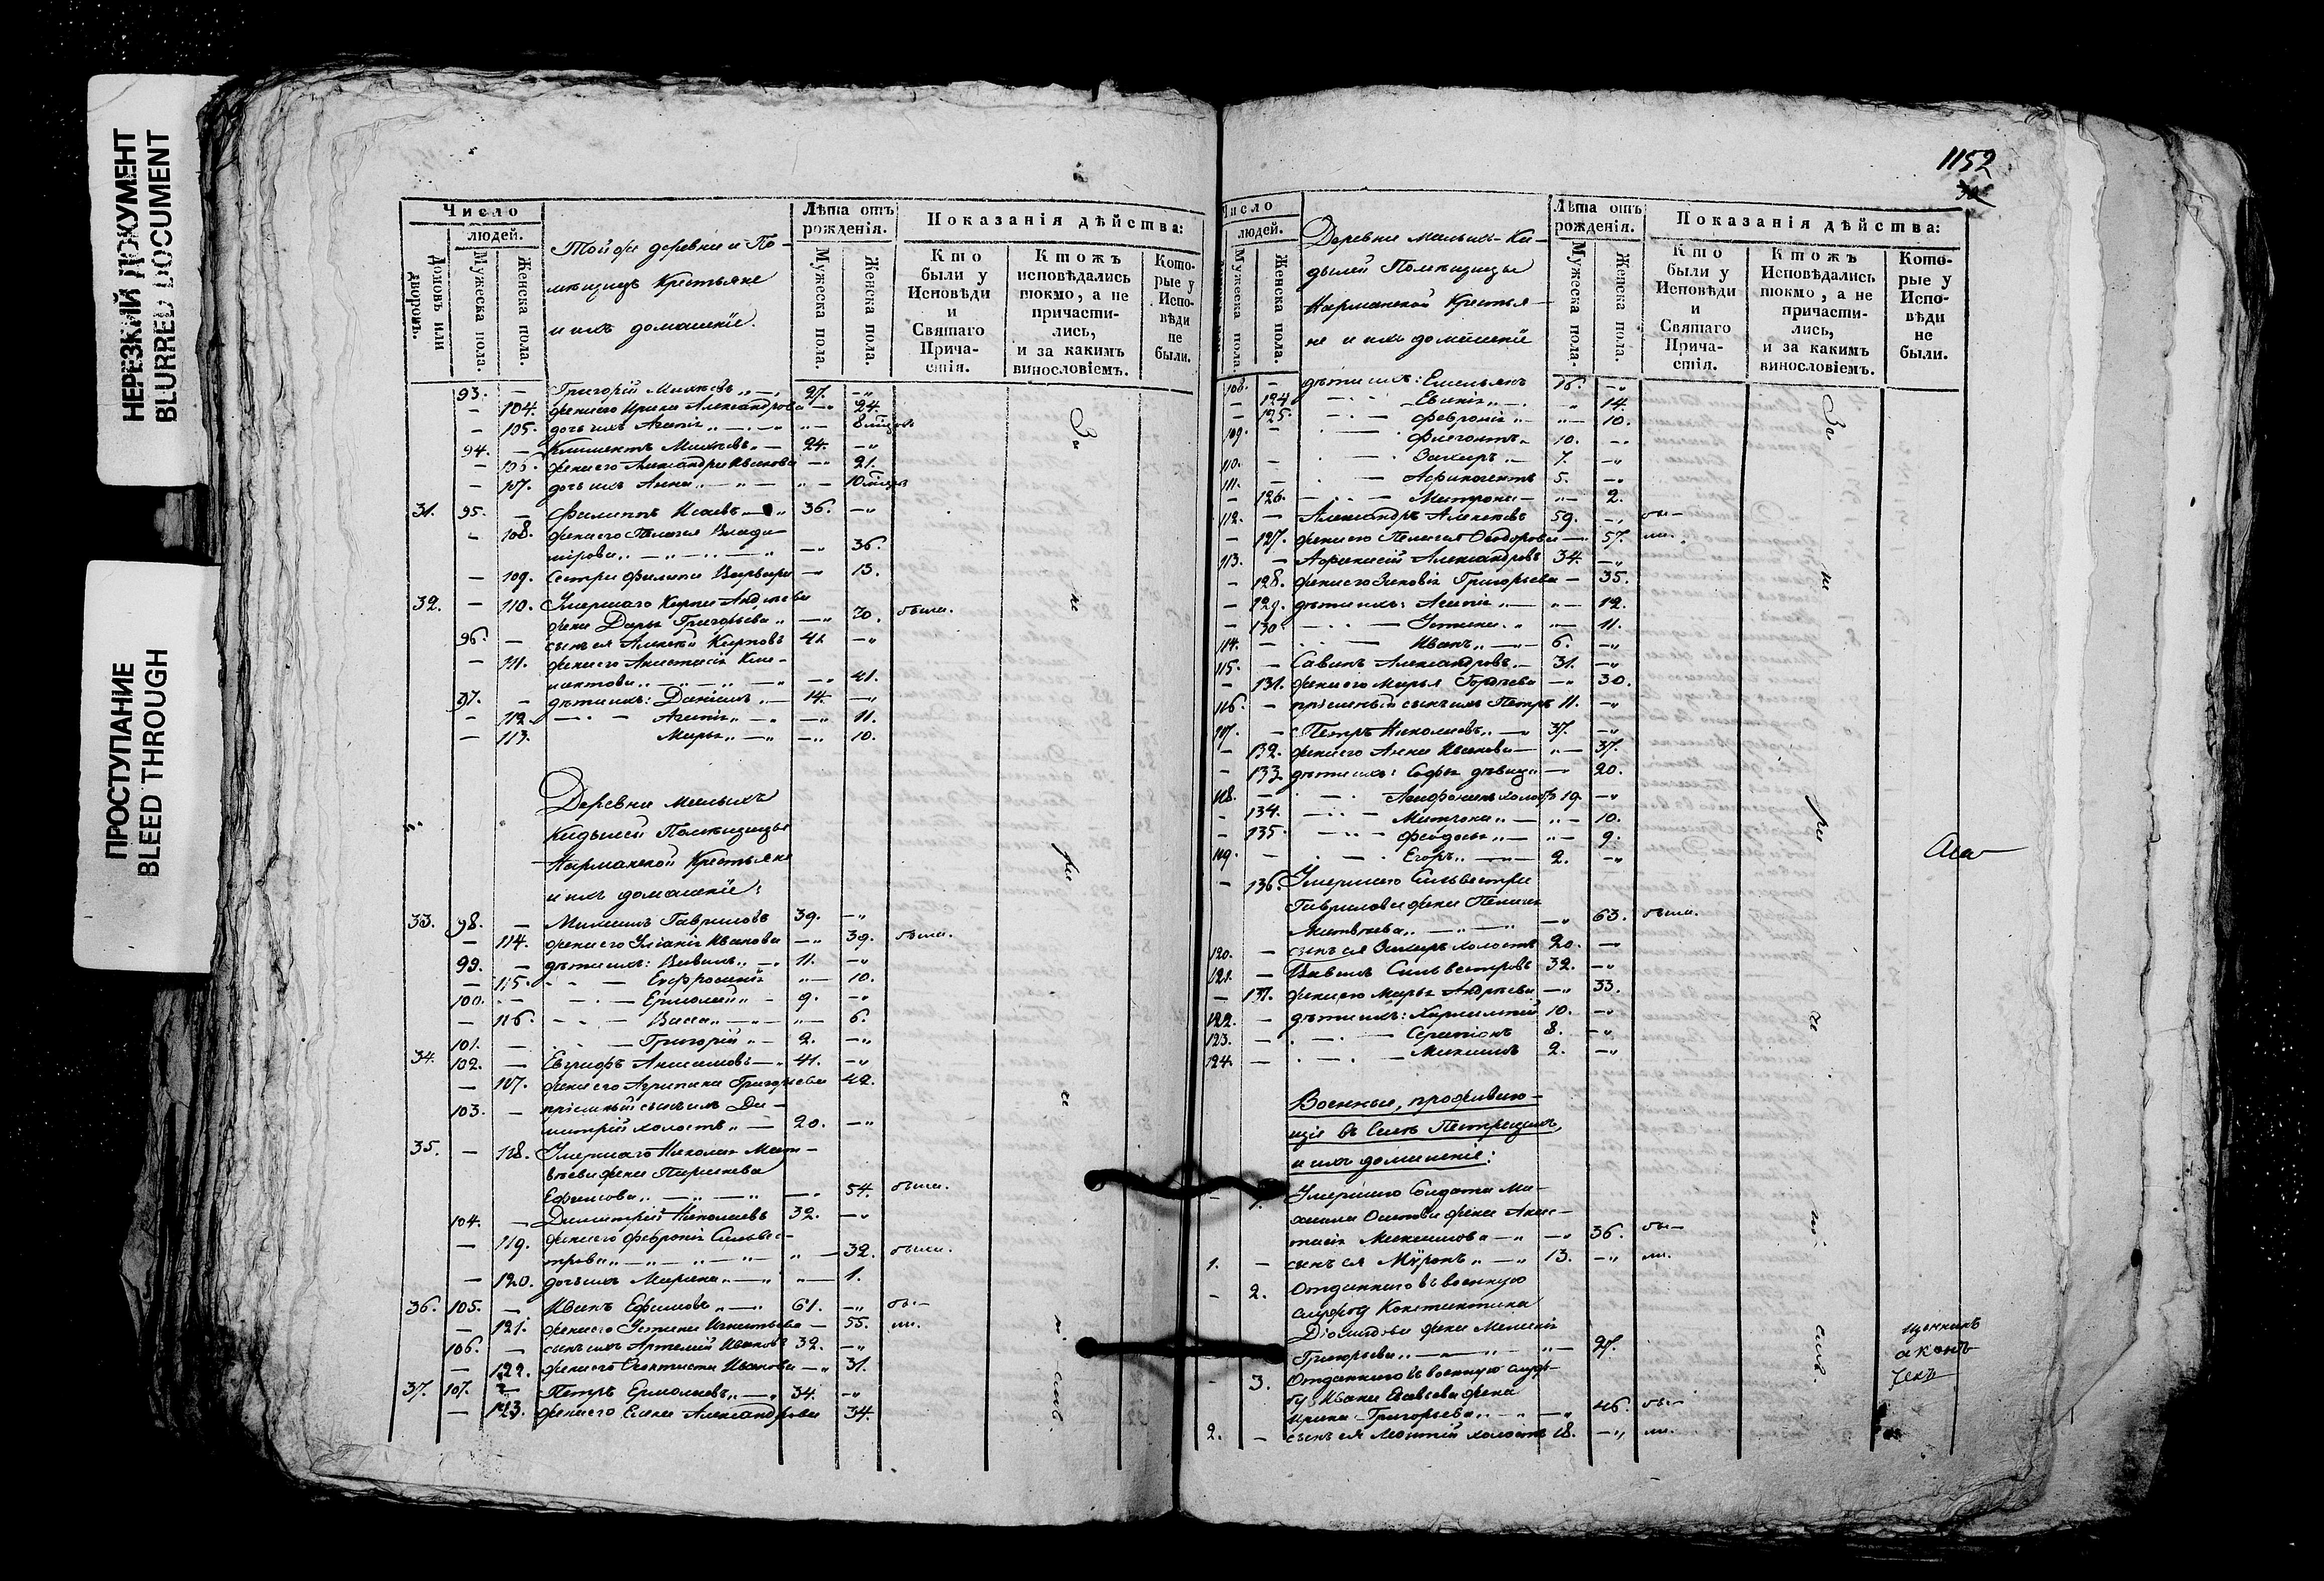 НЕРЕЗКИЙ ДОКУМЕНТ
BLURRED DOCUMENT
ПРОСТУПАНИЕ
BLEED THROUGH
Число
людей.
Домовъ или дворовъ.
Мужеска пола.
Женска пола.
Той же деревни и По-
мѣщицѣ Крестьяне
и ихъ домашніе.
Лѣта отъ рожденія.
Мужеска пола.
Женска пола.
Показанія дѣйства:
Кто были у Исповѣди и Святаго Прича-стія.
Ктожъ исповѣдались токмо, а не причасти-лись, и за какимъ винословіемъ.
Кото-рые у Испо-вѣди не были.
93. — Григорій 27. —
— 104. жена его Ирина Александрова — 24.
— 105. дочь ихъ Агапія — 8 мѣсяц
94. — Климентъ 24. —
— 106. жена его Александра Иванова — 21.
— 107. дочь ихъ Анна — 10 мѣсяц
31. 95. — Филиппъ Исаевъ 36. —
— 108. жена его Пелагея Влади-
мірова — 36.
— 109. Сестра Филипа Варвара — 13.
32. — 110. Умершаго Карпа Андреева
жена Дарья Григорьева — 70. были.
96. — сынъ ея Алексѣй Карповъ 41. —
— 111. жена его Анастасія Кли-
ментова — 41.
97. — дѣти ихъ: Даніилъ 14. —
— 112. — Агапія — 11.
— 113. Марья — 10.
Деревни Малыхъ
Кидышей Помѣщицы
Нармацкой Крестьяне
и ихъ домашніе:
33. 98. — Михаилъ Гавриловъ 39. —
— 114. жена его Уліанія Иванова — 39. были.
99. — дѣти ихъ: Вавилъ 11. —
— 115. — Евфросинія — 10.
100. — Ермолай 9. —
— 116. — Васса — 6.
101. — Григорій 2. —
34. 102. — Евграфъ Анисимовъ 41. —
— 117. жена его Агрипина Григорьева 42.
103. — пріемный сынъ ихъ Ди-
митрій холостъ 20. —
35. — 118. Умершаго Николая Мат-
вѣева жена Параскева
Ефимова — 54. были.
104. — Димитрій Николаевъ 32. —
— 119. жена его Февронія Сильвес-
трова — 32. были.
— 120. дочь ихъ Марина — 1.
36. 105. — Иванъ Ефимовъ 61. — бы-
— 121. жена его Устинья Игнатьева — 55. ли.
106. — сынъ ихъ Артемій Ивановъ 32. —
— 122. жена его Феоктиста Иванова — 31.
37. 107. — Петръ Ермолаевъ 34. —
— 123. жена его Елена Александрова 34.
За
не
1152
Число
людей.
Мужеска пола.
Женска пола.
Деревни Малыхъ-Ки-
дышей Помѣщицы
Нармацкой Крестья-
не и ихъ домашніе
Лѣта отъ рожденія.
Мужеска пола.
Женска пола.
Показанія дѣйства:
Кто были у Исповѣди и Святаго Прича-стія.
Ктожъ Исповѣдались токмо, а не причасти-лись, и за какимъ винословіемъ.
Кото-рые у Испо-вѣди не были.
108. — дѣти ихъ: Емельянъ 16. —
— 124. — Евгенія — 14.
— 125. — Февронія — 10.
109. — Флегонтъ 10. —
110. — Захаръ 7. —
111. — Афиногентъ 5. —
— 126. — Матрона — 2.
112. — Александръ Алексѣевъ 59. — бы-
— 127. жена его Пелагея Ѳеодорова — 57. ли.
113. — Афанасій Александровъ 34. —
— 128. жена его Зиновія Григорьева — 35.
— 129. дѣти ихъ: Агапія — 12.
— 130. — Устинья — 11.
114. — Иванъ 6. —
115. — Савинъ Александровъ 31. —
— 131. жена его Марья Гордѣева — 30.
116. — пріемный сынъ ихъ Петръ 11. —
117. — Петръ Николаевъ 37. —
— 132. жена его Анна Иванова — 37.
— 133. дѣти ихъ: Софья дѣвица — 20.
118. — холостъ 19. —
— 134. — Матрона — 10.
— 135. — Феодосья — 9.
119. — Егоръ 2. —
— 136. Умершаго Сильвестра
Гаврилова жена Пелагея
Матвѣева — 63. были.
120. — сынъ ея Захаръ холостъ 20. —
121. — Вавилъ Сильвестровъ 32. —
— 137. жена его Марья Андреева — 33.
122. — дѣти ихъ: Харлампій 10. —
123. — Серапіонъ 8. —
124. — Михаилъ 2. —
Военные, прожива-
щіе въ Селѣ
и ихъ домашніе:
— 1. Умершаго Солдата Ми-
хаила Осипова жена Анас-
тасія Максимова — 36. бы-
1. — сынъ ея Мѵронъ 13. — ли.
— 2. Отданнаго въ военную
службу Константина
жена Меланія
Григорьева — 27.
— 3. Отданнаго въ военную служ-
бу Ивана жена
Ирина Григорьева — 46. бы-
2. — сынъ ея холостъ 18. — ли.
За
не